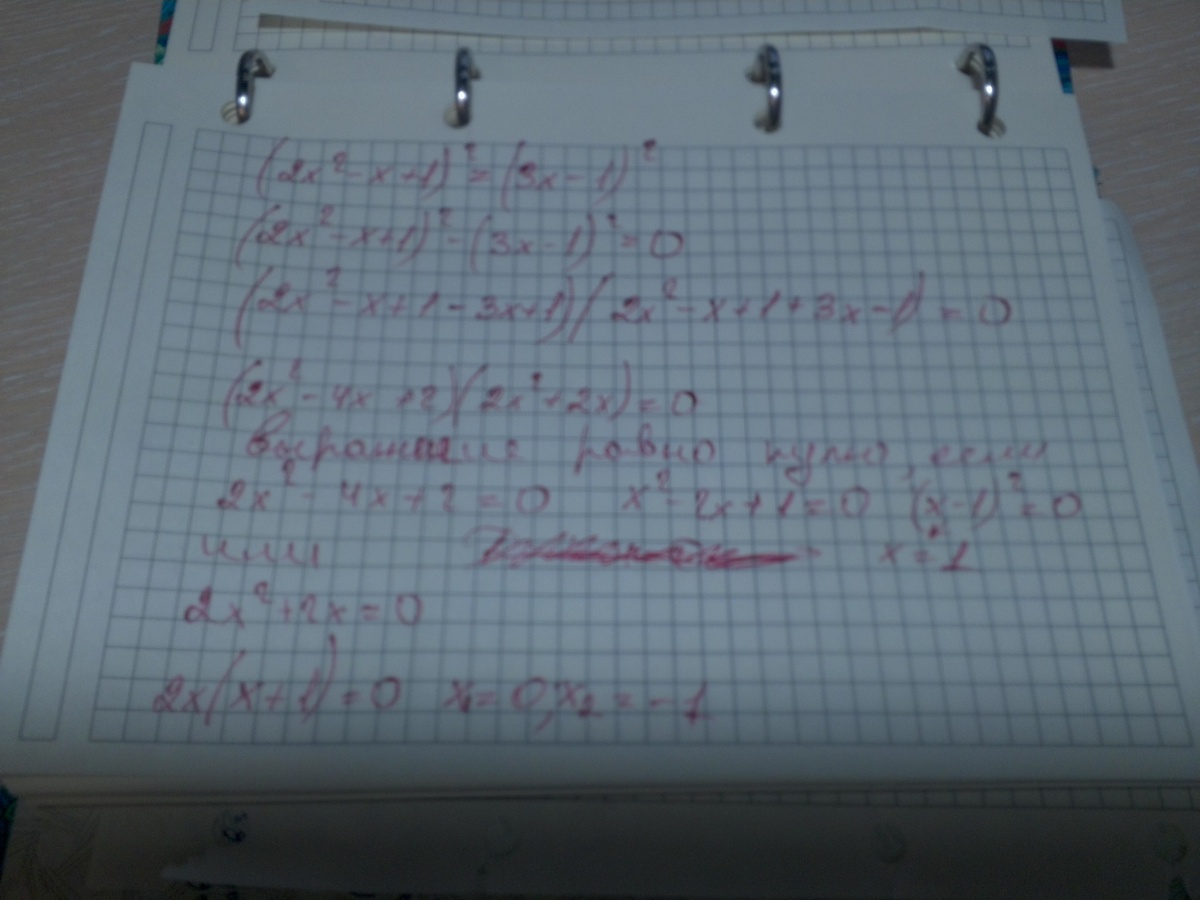 (2x²-x+1)²=(3x-1)²
(2x²-x+1)²-(3x-1)²=0
(2x²-x+1-3x+1)(2x²-x+1+3x-1)=0
(2x²-4x+2)(2x²+2x)=0
выражение равно нулю, если
2x²-4x+2=0 x²-2x+1=0 (x-1)²=0
или x=1
2x²+2x=0
2x(x+1)=0 x₁=0, x₂=-1